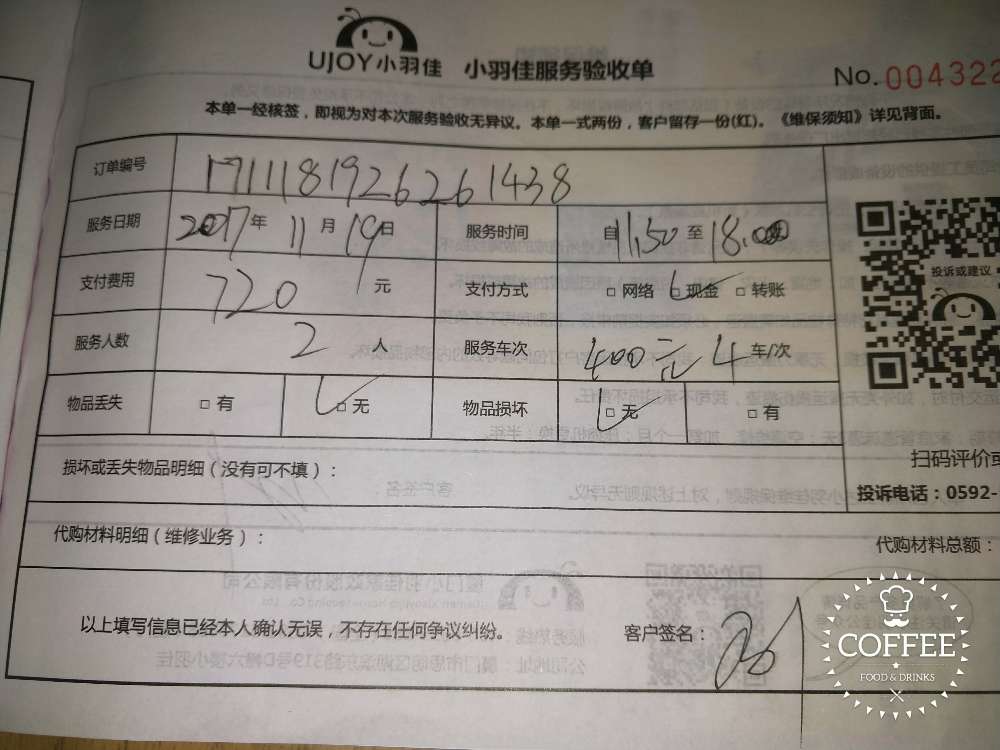 UJOY小羽佳 小羽佳服务验收单
No. 004322
本单一经核签，即视为对本次服务验收无异议。本单一式两份，客户留存一份(红)。《维保须知》详见背面。
订单编号 171118192626261438
服务日期 2017年11月19日 服务时间 自11.50至18.00
支付费用 720元 支付方式 □网络 □现金 □转账
服务人数 2人 服务车次 400元 4车/次
物品丢失 □有 □无 物品损坏 □无 □有
投诉或建议
扫码评价或
投诉电话：0592-
损坏或丢失物品明细（没有可不填）：
代购材料明细（维修业务）： 代购材料总额：
以上填写信息已经本人确认无误，不存在任何争议纠纷。 客户签名：
COFFEE
FOOD & DRINKS